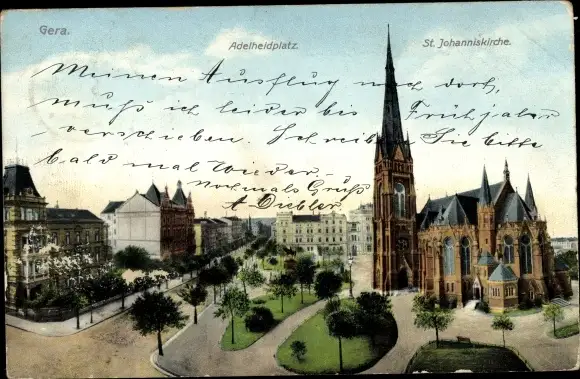 Gera.
Adelheidplatz.
St. Johanniskirche.
Meinen Ausflug nach dort,
muß ich leider bis Frühjahr
verschieben. Schreiben Sie bitte
bald mal wieder.
Nochmals Gruß